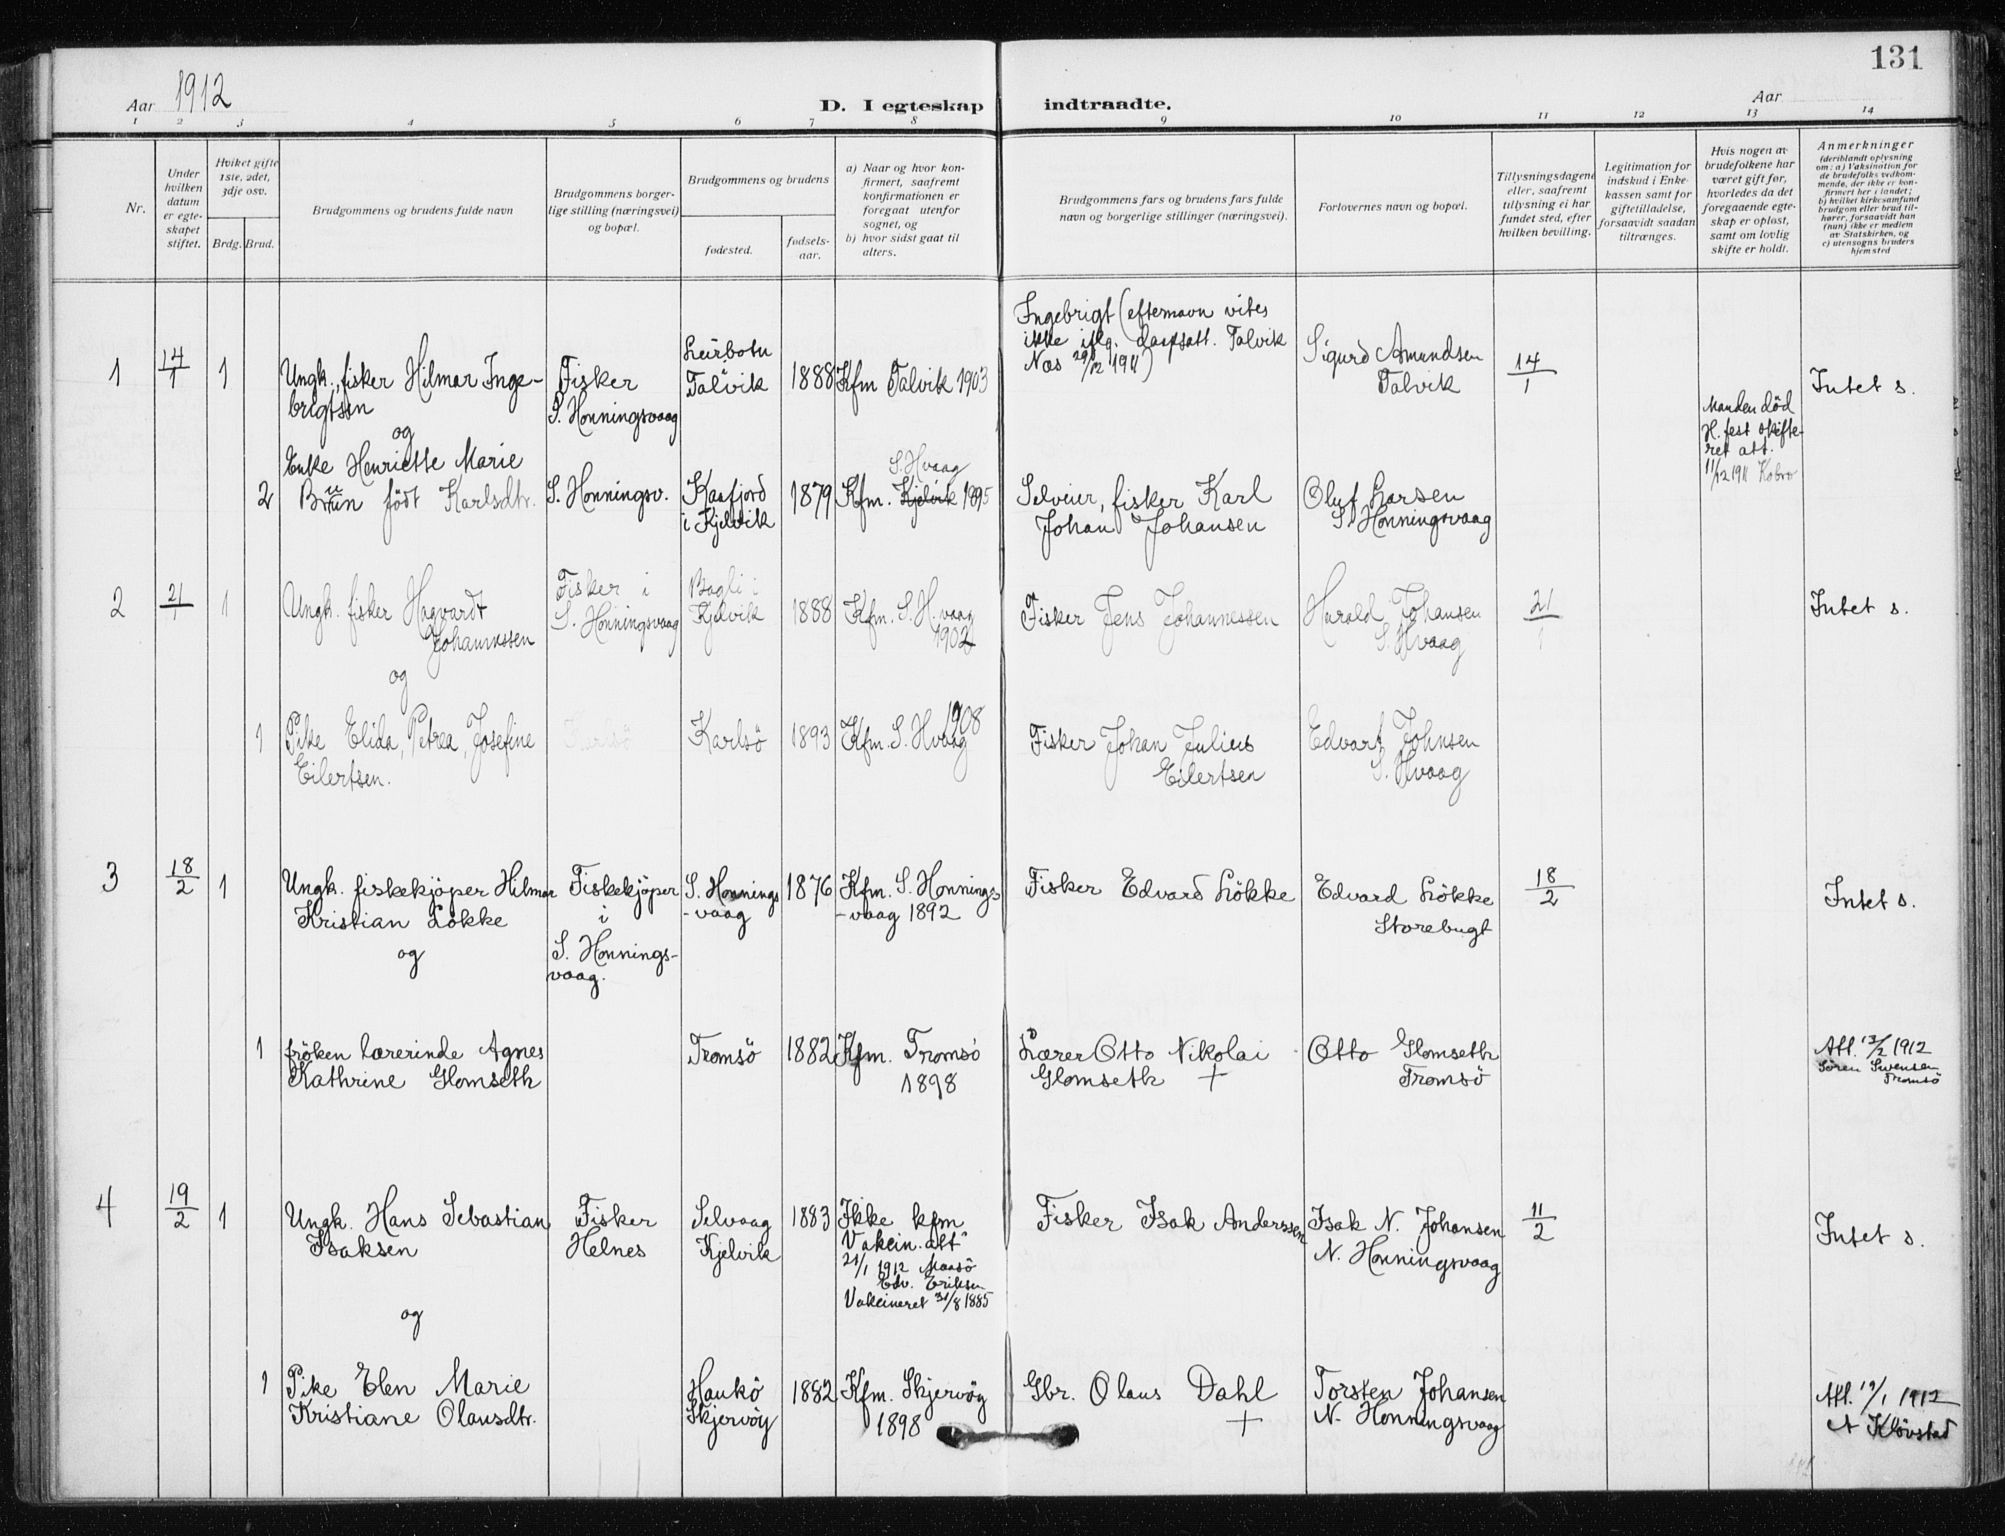 131
Aar 1912
D. I egteskap indtraadte.
Aar
1 2 3 4 5 6 7 8 9 10 11 12 13 14
Nr.
Under hvilken datum er egte-skapet stiftet.
Hvilket gifte 1ste, 2det, 3dje osv.
Brdg. Brud.
Brudgommens og brudens fulde navn
Brudgommens borger-
lige stilling (næringsvei)
og bopæl.
Brudgommens og brudens
fødested.
fødsels-
aar.
a) Naar og hvor kon-
firmert, saafremt
konfirmationen er
foregaat utenfor
sognet, og
b) hvor sidst gaat til
alters.
Brudgommens fars og brudens fars fulde
navn og borgerlige stillinger (næringsvei).
Forlovernes navn og bopæl.
Tillysningsdagene
eller, saafremt
tillysning ei har
fundet sted, efter
hvilken bevilling.
Legitimation for
indskud i Enke-
kassen samt for
giftetilladelse,
forsaavidt saadan
tiltrænges.
Hvis nogen av
brudefolkene har
været gift før,
hvorledes da det
foregaaende egte-
skap er opløst,
samt om lovlig
skifte er holdt.
Anmerkninger
(deriblandt oplysning
om: a) Vaksination for
de brudefolks vedkom-
mende, der ikke er kon-
firmert her i landet;
b) hvilket kirkesamfund
brudgom eller brud til-
hører, forsaavidt han
(hun) ikke er medlem
av Statskirken, og
c) utensogns bruders
hjemsted
1
14/1
1
Ungk., fisker Hilmar Inge-
brigtsen
og
Fisker
S. Honningsvaag
Leirbotn
Talvik
1888
Kfm Talvik 1903
Ingebrigt (efternavn vites
ikke iflg. daapsatt. Talvik
Næs 29/12 1911)
Sigurd Amundsen
Talvik
14/1
Intet s.
2
Enke Henriette Marie
Bruun födt Karlsdtr.
S. Honningsv.
Kaafjord
i Kjelvik
1879
S. Hvaag
Kfm. Kjelvik 1895
Selveier, fisker Karl
Johan Johansen
Oluf Larsen
S. Honningsvaag
Manden död
H. fest skifte-
ret att.
11/12 1911 Kobro
2
21/1
1
Ungk. fisker Hagvardt
Johannessen
og
Fisker i
S. Honningsvaag
Kjelvik
1888
Kfm. S. H.vaag
1902
Fisker Jens Johannessen
Harald Johansen
S. Hvaag
21/1
Intet s.
1
Pike Elida, Petrea, Josefine
Eilertsen.
Karlsö
Karlsö
1893
Kfm. S. Hvaag 1908
Fisker Johan Julius
Eilertsen
Edvart Johnsen
S. Hvaag
3
18/2
1
Ungk. fiskekjöper Hilmar
Kristian Lökke
og
Fiskekjöper
i
S. Honnings-
vaag.
S. Honnings
-vaag
1876
Kfm. S. Honnings-
-vaag 1892
Fisker Edvard Lökke
Edvard Lökke
Storebugt
18/2
Intet s.
1
fröken lærerinde Agnes
Kathrine Glomseth
Tromsö
1882
Kfm. Tromsö
1898
Lærer Otto Nikolai
Glomseth +
Otto Glomseth
Tromsö
Att. 13/2 1912
Sören Svensen
Tromsö
4
19/2
1
Ungk. Hans Sebastian
Isaksen
og
Fisker
Helnes
Selvaag
Kjelvik
1883
Ikke kfm
Vakcin. att
21/1 1912 Maasö
Edv. Eriksen
Vakcineret 31/8 1885
Fisker Isak Anderssen
Isak N. Johansen
N. Honningsvaag
11/2
Intet s.
1
Pike Elen Marie
Kristiane Olausdtr.
Haukö
Skjervöy
1882
Kfm. Skjervöy
1898
Gbr. Olaus Dahl
+
Torsten Johansen
N. Honningsvaag
Att. 19/1 1912
A Klövstad